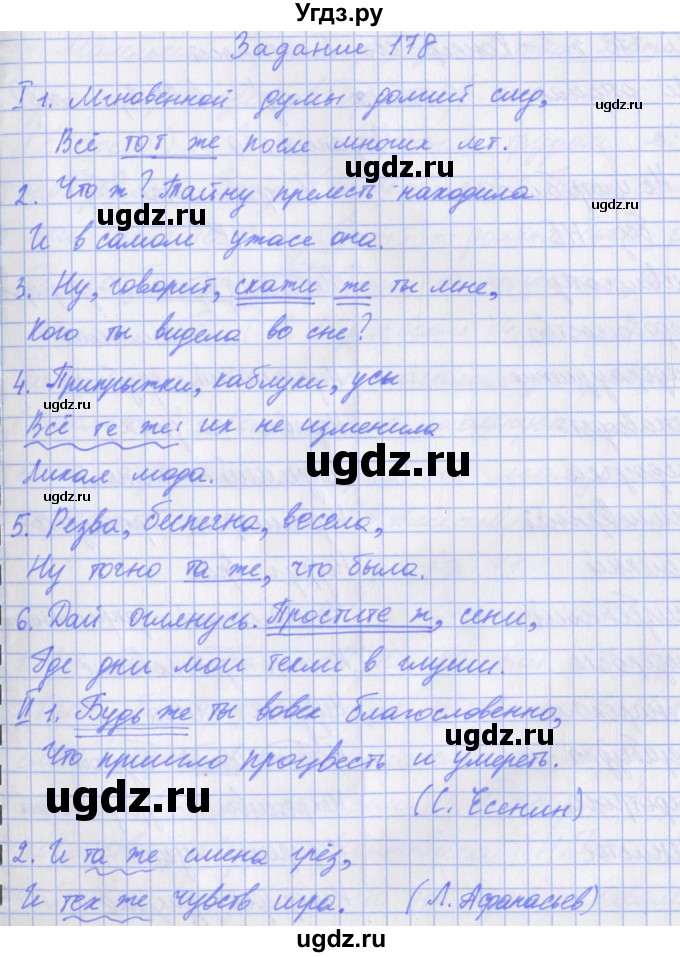 Угдз.ру
Задание 178
I 1. Мгновенной думы долгий след,
Всё тот же после многих лет.
2. Что ж? Тайну прелесть находила
И в самом ужасе она.
3. Ну, говорит, скажи же ты мне,
Кого ты видела во сне?
4. Припрыжки, каблуки, усы
Всё те же: их не изменила
Лихая мода.
5. Резва, беспечна, весела,
Ну точно та же, что была.
6. Дай оглянусь. Простите ж, сени,
Где дни мои текли в глуши.
II 1. Будь же ты вовек благословенно,
Что пришло процвесть и умереть.
(С. Есенин)
2. И та же смена грёз,
И тех же чувств игра. (Л. Афанасьев)
ugdz.ru
ugdz.ru
ugdz.ru
ugdz.ru
ugdz.ru
ugdz.ru
ugdz.ru
ugdz.ru
ugdz.ru
ugdz.ru
ugdz.ru
ugdz.ru